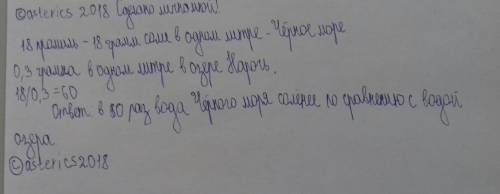 ©asterics 2018 Сделано мимахой!
18 промиль - 18 грамм соли в одном литре - Чёрное море
0,3 грамма в одном литре в озере Нарочь.
18/0,3=60
Ответ в 60 раз вода Чёрного моря солёнее по сравнению с водой
озера
©asterics2018